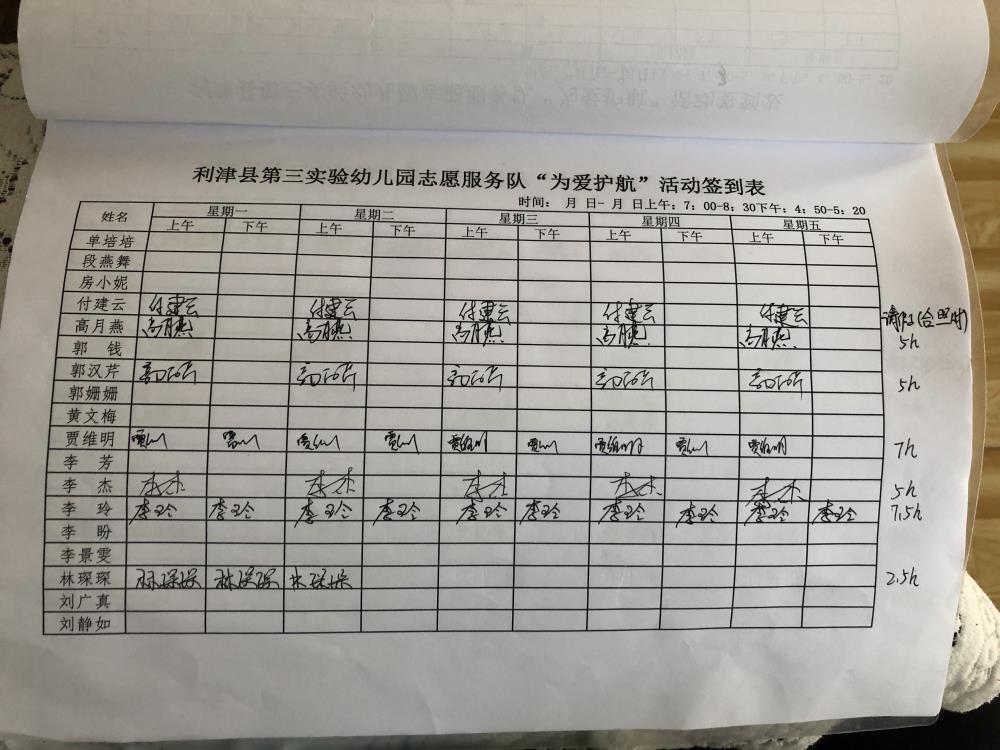 利津县第三实验幼儿园志愿服务队“为爱护航”活动签到表
时间： 月 日- 月 日上午：7：00-8：30下午：4：50-5：20
姓名 星期一 星期二 星期三 星期四 星期五
上午 下午 上午 下午 上午 下午 上午 下午 上午 下午
单培培
段燕舞
房小妮
付建云 付建云 付建云 付建云 付建云 付建云
高月燕 高月燕 高月燕 高月燕 高月燕 高月燕 5h
郭 钱
郭汉芹 郭汉芹 郭汉芹 郭汉芹 郭汉芹 郭汉芹 5h
郭姗姗
黄文梅
贾维明 贾维明 贾维明 贾维明 7h
李 芳
李 杰 李杰 李杰 李杰 李杰 李杰 5h
李 玲 李玲 李玲 李玲 李玲 李玲 李玲 李玲 李玲 李玲 李玲 7.5h
李 盼
李景雯
林琛琛 林琛琛 林琛琛 林琛琛 2.5h
刘广真
刘静如